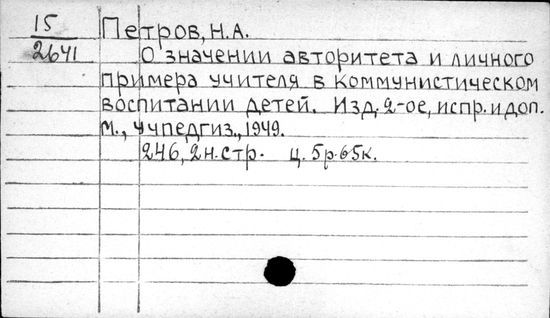 15
2641
Петров, Н.А.
О значении авторитета и личного
примера учителя в коммунистическом
воспитании детей. Изд. 2-ое, испр. и доп.
М., Учпедгиз., 1949.
246, 2 н. стр. ц. 5р. 65к.